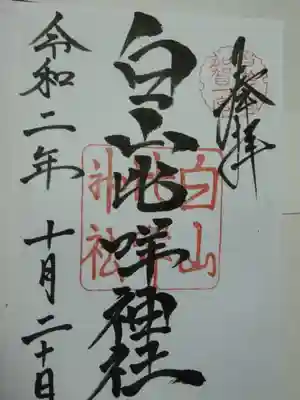 奉拝
白山比咩神社
令和二年 十月二十日
白山比咩神社